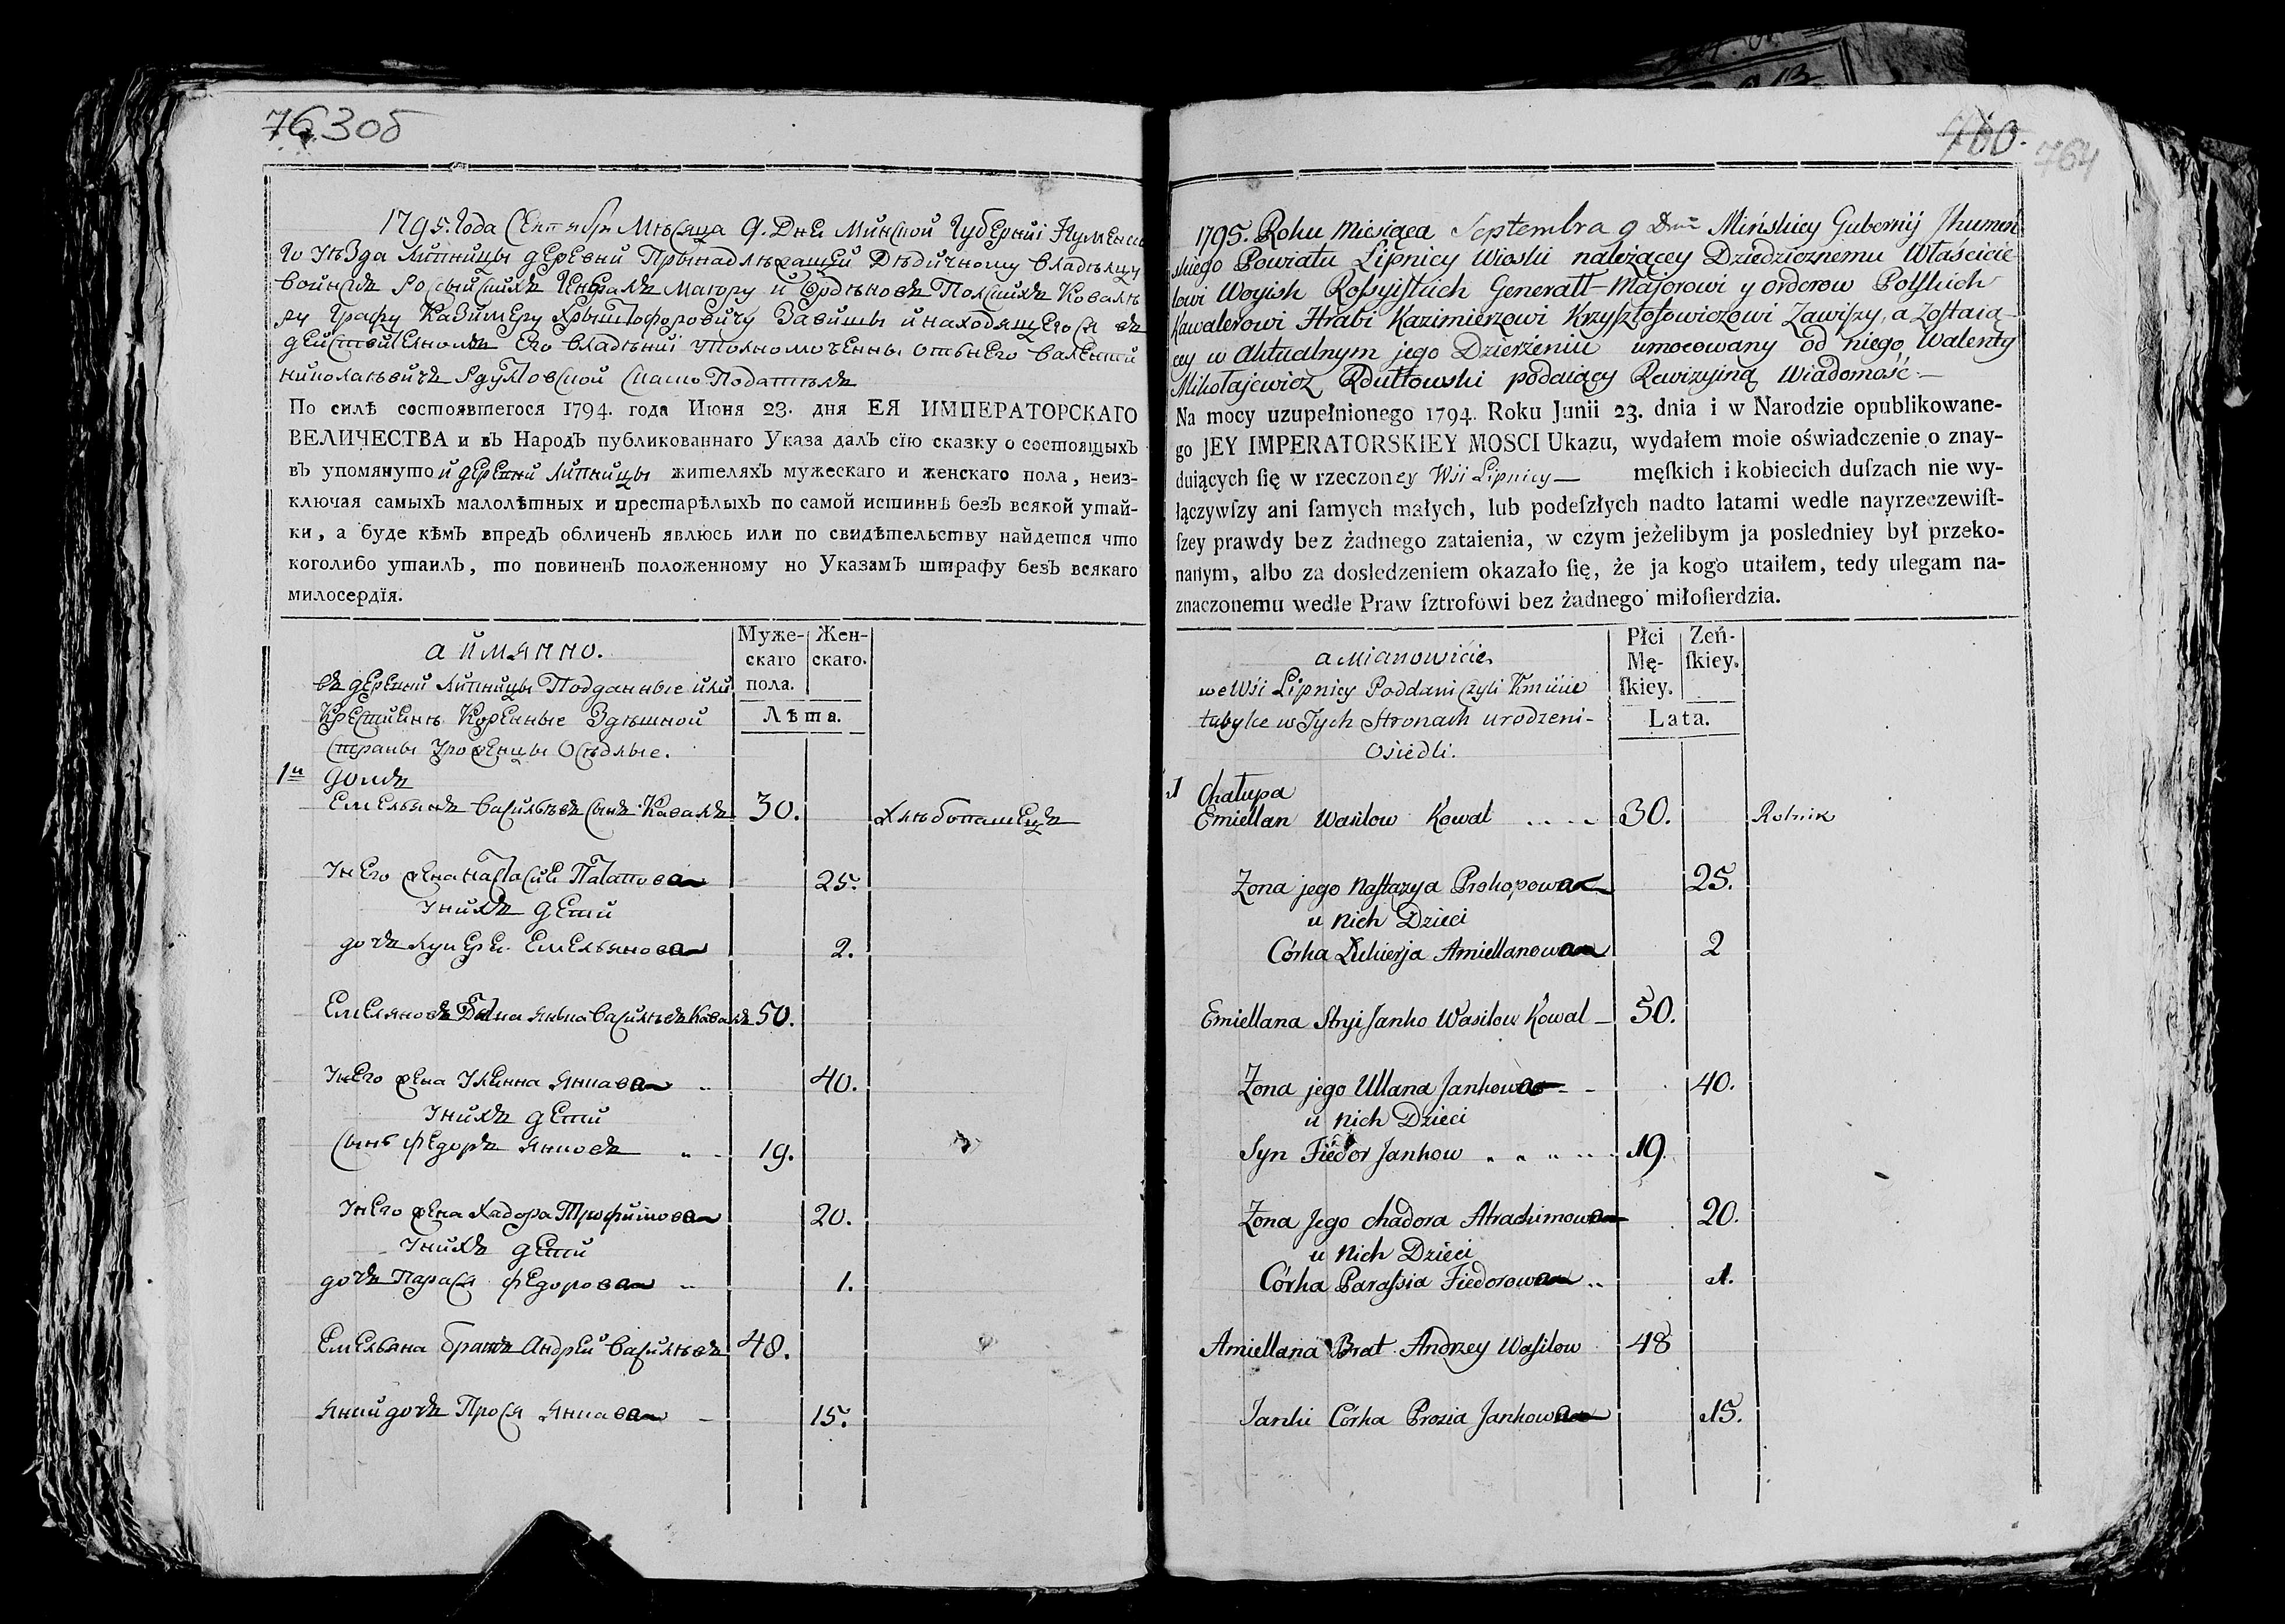 763об
1795. Года Сентября Мѣсяца 9. Дня Минской Губерніи Игуменска
го Уѣзда Липницы деревни Принадлѣжащей Дѣдичному владѣлцу
войскъ Россыйскихъ Генералъ Маіору и Орденовъ Полскихъ Кавале
ру Графу Казимеру Хрыштофоровичу Завишы и находящегося въ
действителномъ Его владѣніи уполномоченны отънего валентий
николаевичъ Рдултовской
По силѣ состоявшегося 1794. года Июня 23. дня ЕЯ ИМПЕРАТОРСКАГО
ВЕЛИЧЕСТВА и въ Народъ публикованнаго Указа далъ сїю сказку о состоящыхъ
въ упомянутой деревни Липницы жителяхъ мужескаго и женскаго пола, неиз-
ключая самыхъ малолѣтных и престарѣлыхъ по самой истиннѣ безъ всякой утай-
ки, а буде кѣмъ впредъ обличенъ явлюсь или по свидѣтельству найдется что
коголибо утаилъ, то повиненъ положенному по Указамъ штрафу безъ всякаго
милосердїя.
а имянно.
Муже-
скаго
пола.
Жен-
скаго.
Лѣта.
въ деревни липницы Подданные или
Крестияне Коренные Здѣшной
Страны Уроженцы Осѣдлые.
1й домъ
Емельянъ васильевъ сынъ Ковалъ 30. Хлѣбопашецъ
Унего жена настасия 25.
Унихъ дети
дочъ Лукерея Емельянова 2.
Емеляновъ васильевъ Ковалъ 50.
Унего жена Улянна Янкова 40.
Унихъ дети
сынъ федоръ янковъ 19.
Унего жена Хадора Трофимова 20.
Унихъ дети
дочъ Парася федорова 1.
Емельяна братъ Андрей васильевъ 48.
Янки дочъ Прося янкова 15.
760.
764
1795. Roku Miesiąca Septembra 9 Dnia Mińskiey Gubernij Jhumeń
skiego Powiatu Lipnicy Wioski należącey Dziedzicznemu Właścicie
lowi Woyisk Roſsyiſkich Generałł-Majorowi y orderow Polſkich
Kawalerowi Hrabi Kazimierzowi Krzyſztofowiczowi Zawiſzy, a Zoſtaią
cey w aktualnym jego Dzierżeniu umocowany od niego Walenty
Mikołajewicz Rdułtowski podaiący Rewizyiną Wiadomość.—
Na mocy uzupełnionego 1794. Roku Junii 23. dnia i w Narodzie opublikowane-
go JEY IMPERATORSKIEY MOSCI Ukazu, wydałem moie oświadczenie o znay-
duiących ſię w rzeczoney Wśi Lipnicy— męſkich i kobiecich duſzach nie wy-
łączywſzy ani ſamych małych, lub podeſzłych nadto latami wedle nayrzeczewiſt-
ſzey prawdy bez żadnego zataienia, w czym jeżelibym ja posledniey był przeko-
nanym, albo za dosledzeniem okazało ſię, że ja kogo utaiłem, tedy ulegam na-
znaczonemu wedle Praw ſztrofowi bez żadnego miłoſierdzia.
a Mianowicie
Płci
Mę-
ſkiey.
Żeń-
ſkiey.
Lata.
we Wśi Lipnicy Poddani czyli Kmiecie
tubylce w Tych Stronach urodzeni-
Osiedli.
1 Chałupa
Emiellan Wasilow Kowal .... 30. Rolnik
Żona jego Naſtazya Prokopowa 25.
u nich Dzieci
Córka Łukierja Amiellanowa 2
Emiellana Stryi Janko Wasilow Kowal — 50.
Żona jego Ullana Jankowa 40.
u nich Dzieci
Syn Fiedor Jankow 19.
Żona Jego Chadora Atrachimowa 20.
u nich Dzieci
Córka Paraſsia Fiedorowa 1.
Amiellana Brat Andrzey Waſilow 48
Janki Córka Prozia Jankowa 15.